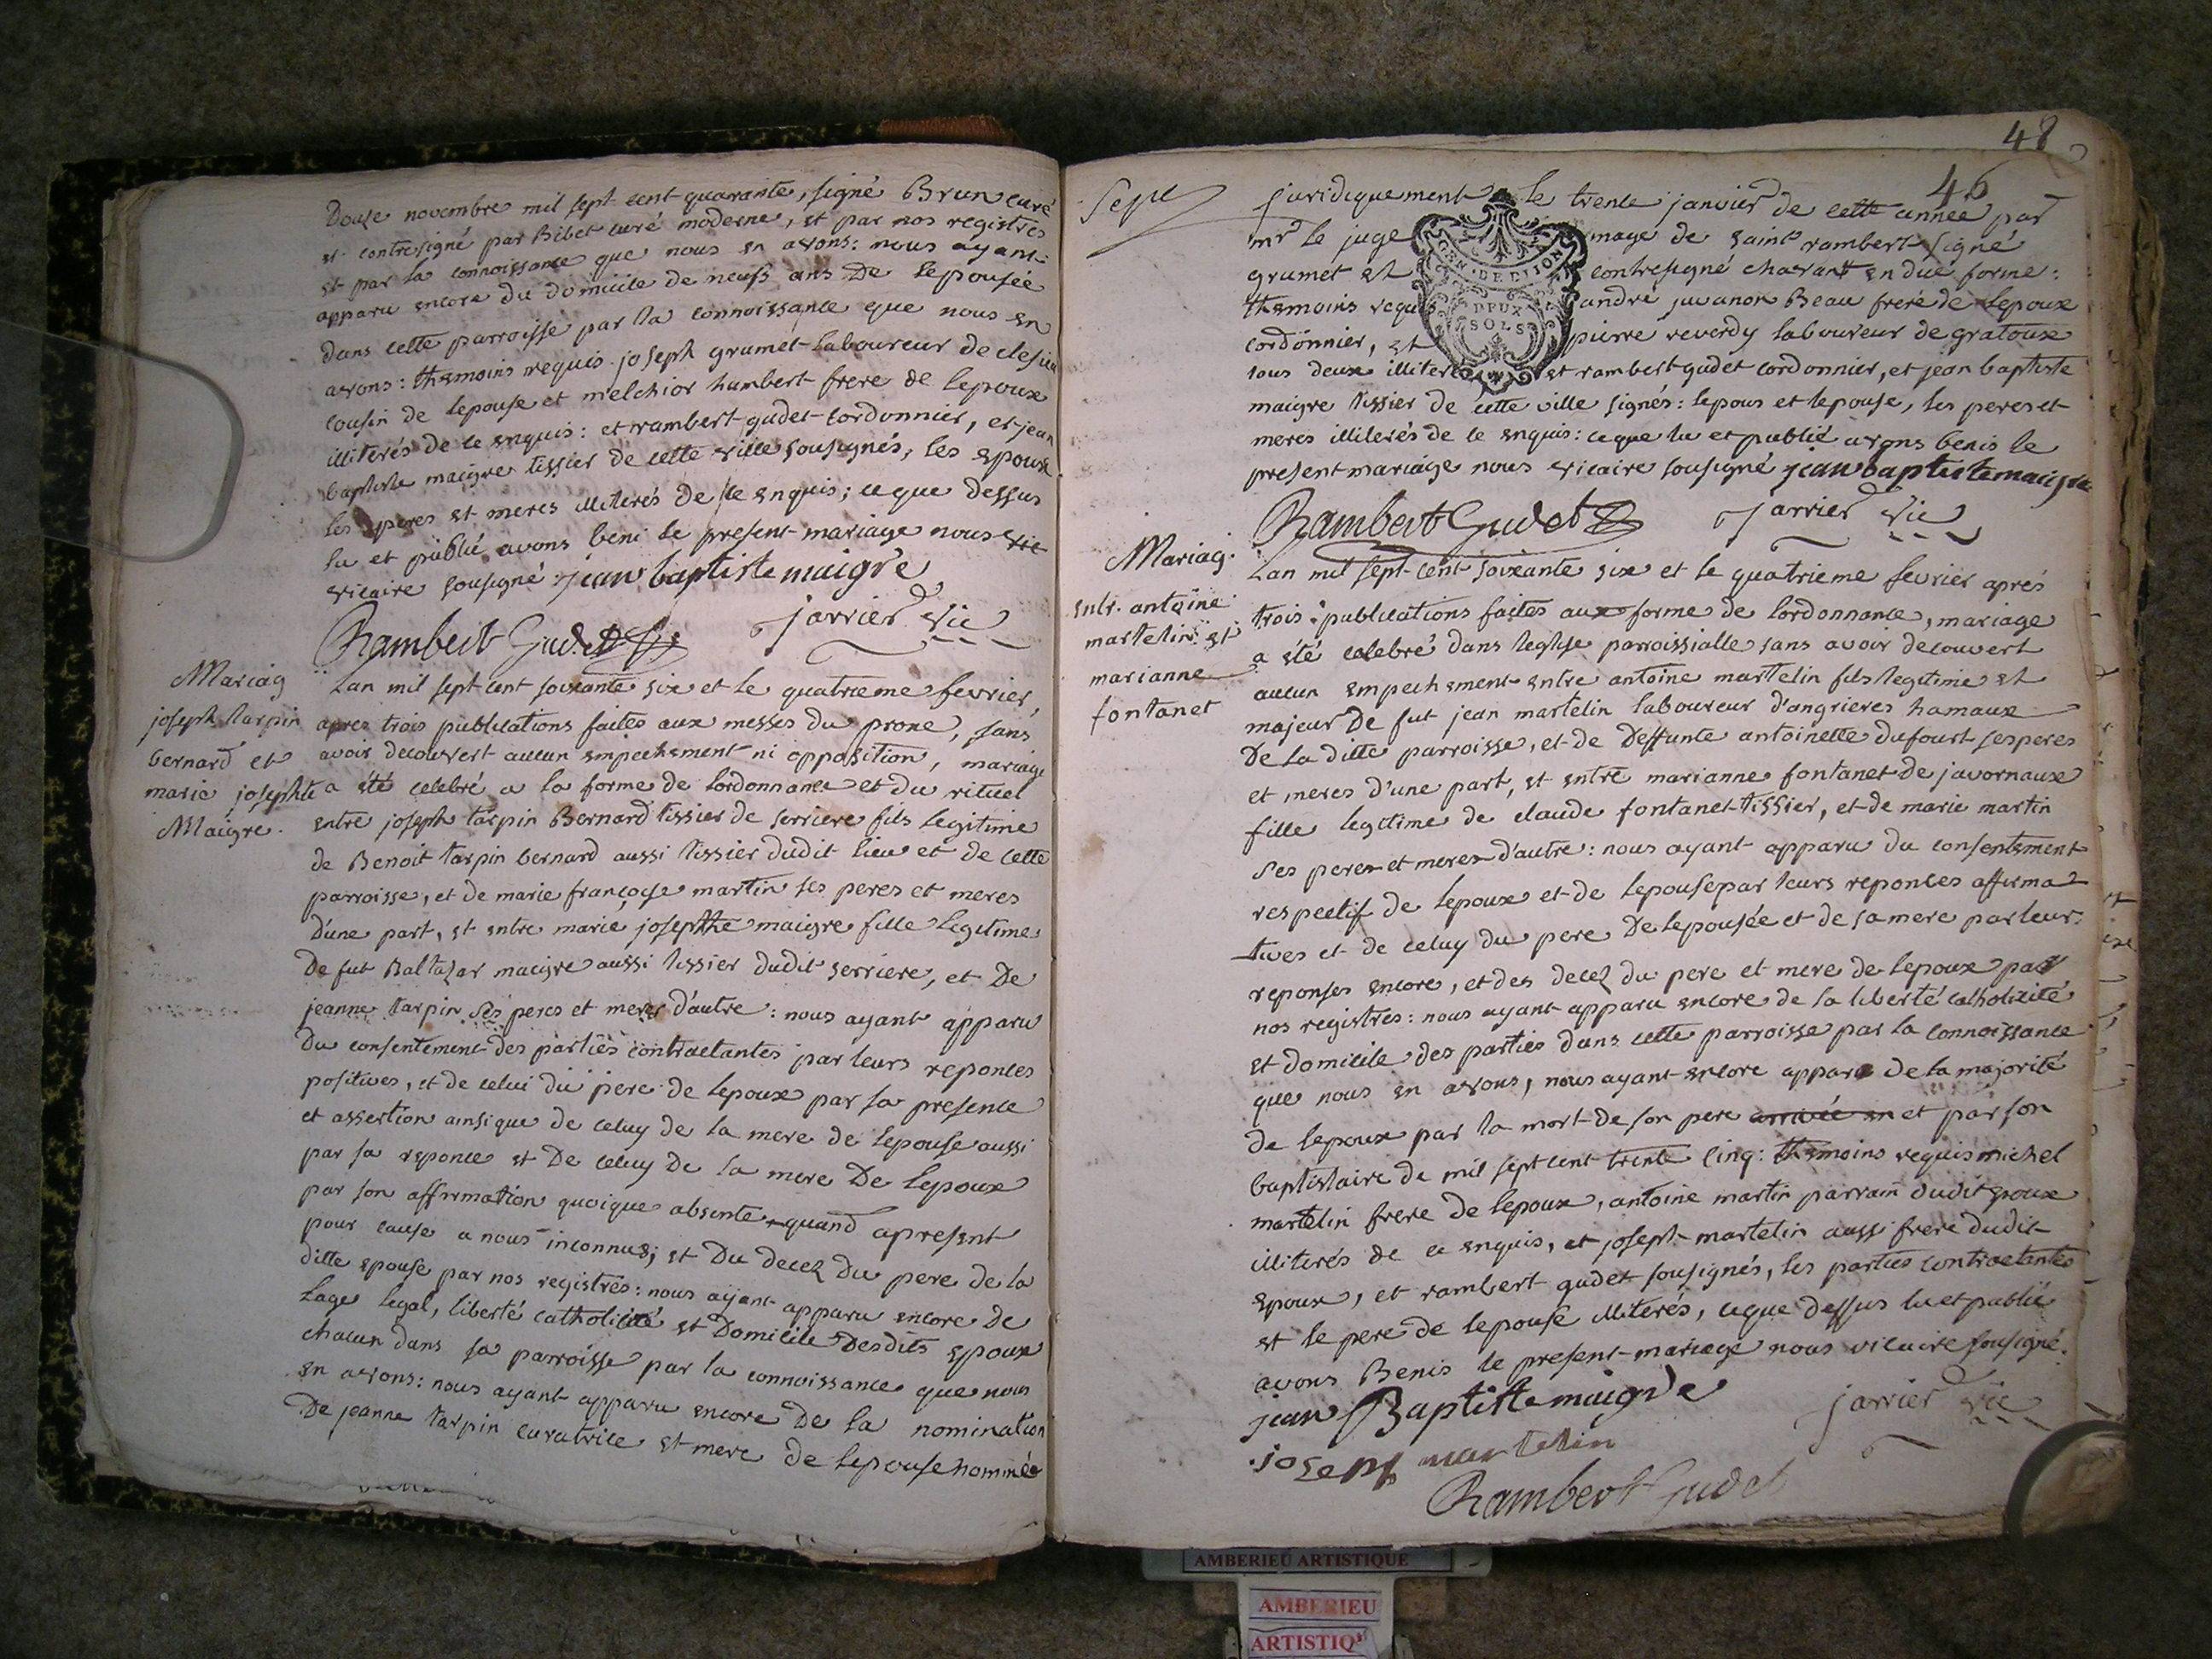 Douze novembre mil sept cent quarante, signé Brun curé
et contresigné par Bibet curé moderne, et par nos registres
et par la connoissance que nous en avons: nous ayant
apparu encore du domicile de neufs ans De lepousée
dans cette parroisse par la connoissance que nous en
avons: themoins requis joseph grumet laboureur de
cousin de lepouse et melchior humbert frere de lepoux
illiterés de ce enquis: et rambert gudet cordonnier, et jean
baptiste maigre tissier de cette ville sousignés, les epoux
les peres et meres illiterés de ce enquis; ce que dessus
lu et publié avons beni le present mariage nous vic
vicaire sousigné jean baptiste maigre
Rambert Gudet jarrier vic
Mariag
joseph tarpin
bernard et
marie josephte
Maigre.
Lan mil sept cent soixante six et le quatrieme fevrier,
apres trois publications faites aux messes du prone, sans
avoir decouvert aucun empechement ni opposition, mariage
a été celebré a la forme de lordonnance et du rituel
entre joseph tarpin Bernard tissier de serriere fils legitime
de Benoit tarpin bernard aussi tissier dudit lieu et de cette
parroisse, et de marie françoise martin ses peres et meres
d'une part, et entre marie josephte maigre fille legitime
De fut Baltazar maigre aussi tissier dudit serriere, et De
jeanne tarpin ses peres et meres d'autre: nous ayant apparu
Du consentement des parties contractantes par leurs reponces
positives, et de celui du pere de lepoux par sa presence
et assertion ainsi que de celuy de la mere de lepouse aussi
par sa reponce et De celuy De la mere De lepoux
par son affirmation quoique absente quand apresent
pour cause a nous inconnue; et Du decez Du pere de la
ditte epouse par nos registres: nous ayant apparu encore De
Lage legal, liberté catholicité et Domicile Desdits epoux
chacun dans sa parroisse par la connoissance que nous
en avons: nous ayant apparu encore De la nomination
De jeanne tarpin curatrice et mere de lepouse nommée
48
46
Sepe
juridiquement le trente janvier de cette année par
mr le juge mage de saint rambert signé
grumet et contresigné chavant en due forme:
GEN · DE DIJON
DEUX
SOLS
themoins requis andré juvanon Beau frere de lepoux
cordonnier, et pierre reverdy laboureur de gratoux
tous deux illiterés et rambert gudet cordonnier, et jean baptiste
maigre tissier de cette ville signés: lepoux et lepouse, les peres et
meres illiterés de ce enquis: ce que lu et publié avons benis le
present mariage nous vicaire sousigné jean baptiste maigre
Rambert Gudet jarrier vic
Mariag.
entr. antoine
martelin et
marianne
fontanet
Lan mil sept cent soixante six et le quatrieme fevrier aprés
trois publications faites aux forme de lordonnance, mariage
a été celebré dans leglise parroissialle sans avoir decouvert
aucun empechement entre antoine martelin fils legitime et
majeur De fut jean martelin laboureur d'angrieres hamaux
De la ditte parroisse, et de Deffunte antoinette dufourt ses peres
et meres d'une part, et entre marianne fontanet de javornaux
fille legitime de claude fontanet tissier, et de marie martin
ses peres et meres d'autre: nous ayant apparu du consentement
respectif de lepoux et de lepouse par leurs reponces affirma
tives et de celuy du pere De lepousée et de sa mere par leur
reponses encore, et des decez du pere et mere de lepoux par
nos registres: nous ayant apparu encore de la liberté catholicité
et domicile des parties dans cette parroisse par la connoissance
que nous en avons, nous ayant encore apparu De la majorité
de lepoux par la mort de son pere arrivée en et par son
baptistaire de mil sept cent trente cinq: themoins requis michel
martelin frere de lepoux, antoine martin parrain dudit epoux
illiterés de ce enquis, et joseph martelin aussi frere dudit
epoux, et rambert gudet sousignés, les parties contractantes
et le pere de lepouse illiterés, ce que dessus lu et publié
avons Benis le present mariage nous vicaire sousigné.
jean Baptiste maigre jarrier vic
joseph martelin
Rambert Gudet
AMBERIEU ARTISTIQUE
AMBERIEU
ARTISTIQ